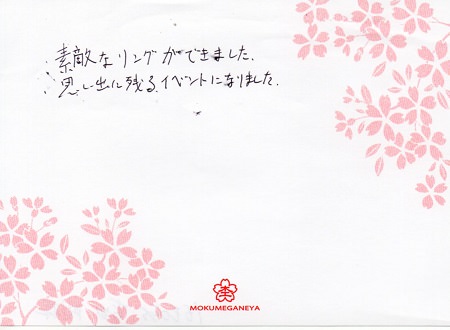 素敵なリングができました.
思い出に残る.イベントになりました.
MOKUMEGANEYA